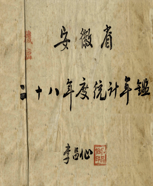 安徽省
二十八年度统计年鑑
李品仙